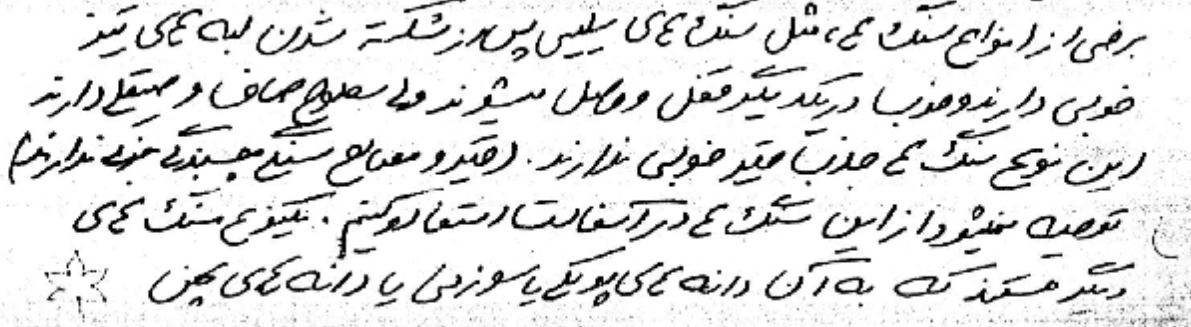 برخی از انواع سنگ ها، مثل سنگ های سیلیسی پس از شکسته شدن لبه های تیز
خوبی دارند و خوب در یکدیگر قفل و وصل میشوند ولی سطوح صاف و صیقلی دارند
این نوع سنگ ها جذب قیر خوبی ندارند. (قیر و مصالح سنگی چسبندگی خوبی ندارند)
توصیه نمیشود از این سنگ ها در آسفالت استفاده کنیم. یکنوع سنگ های
دیگر هستند که به آن دانه های پولکی یا سوزنی یا دانه های پهن